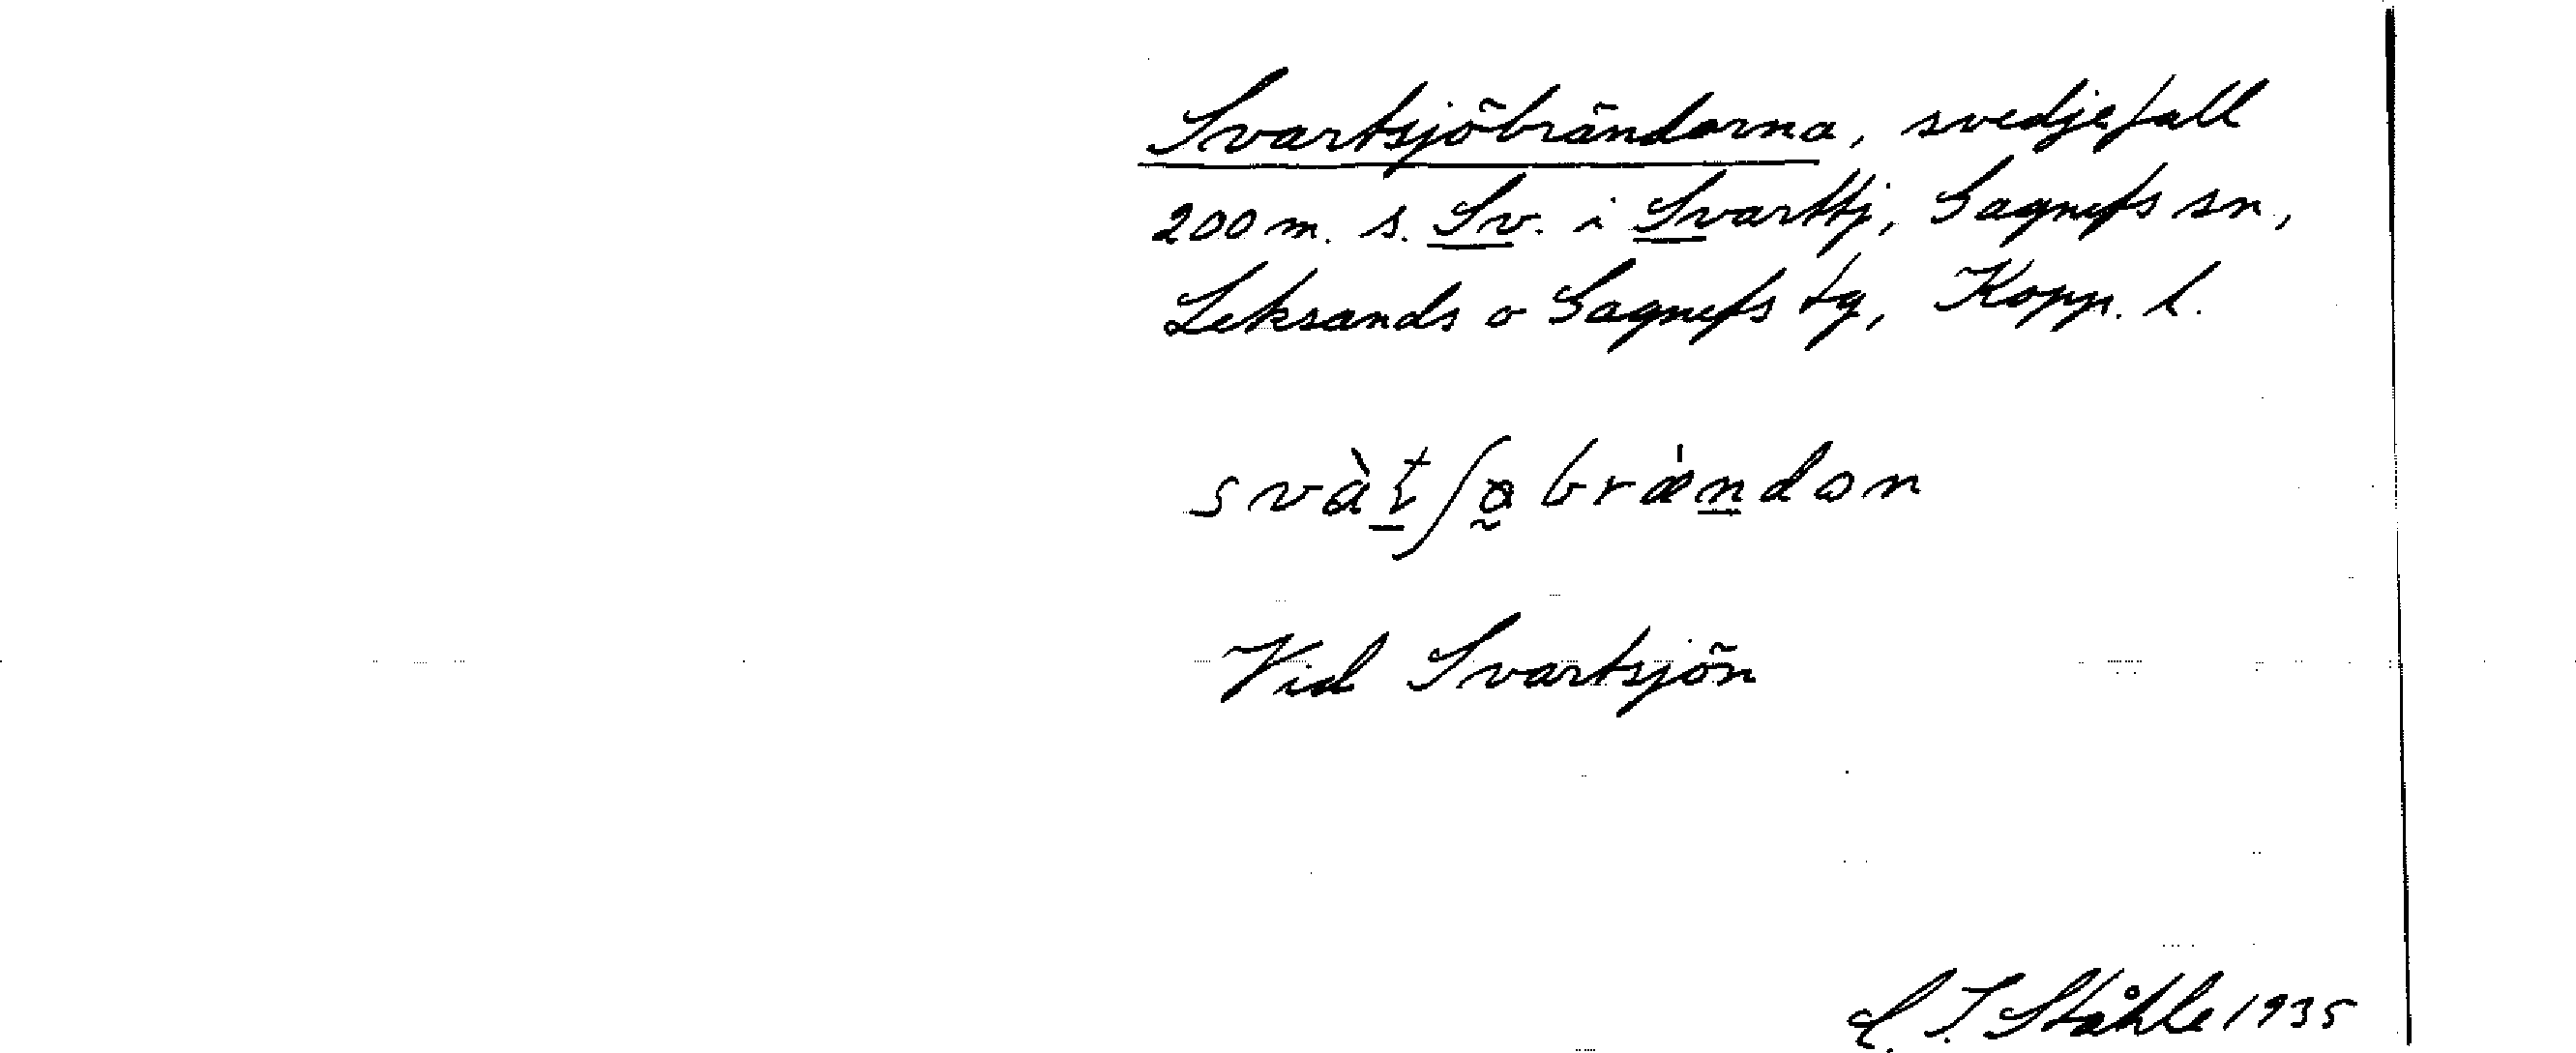 Svartsjöbrändorna, svedjefall
200 m. s. Sv. i Svarttj, Gagnefs sn,
Leksands o Gagnefs tg, Kopp. l.
Vid Svartsjön
C. I. Ståhle 1935